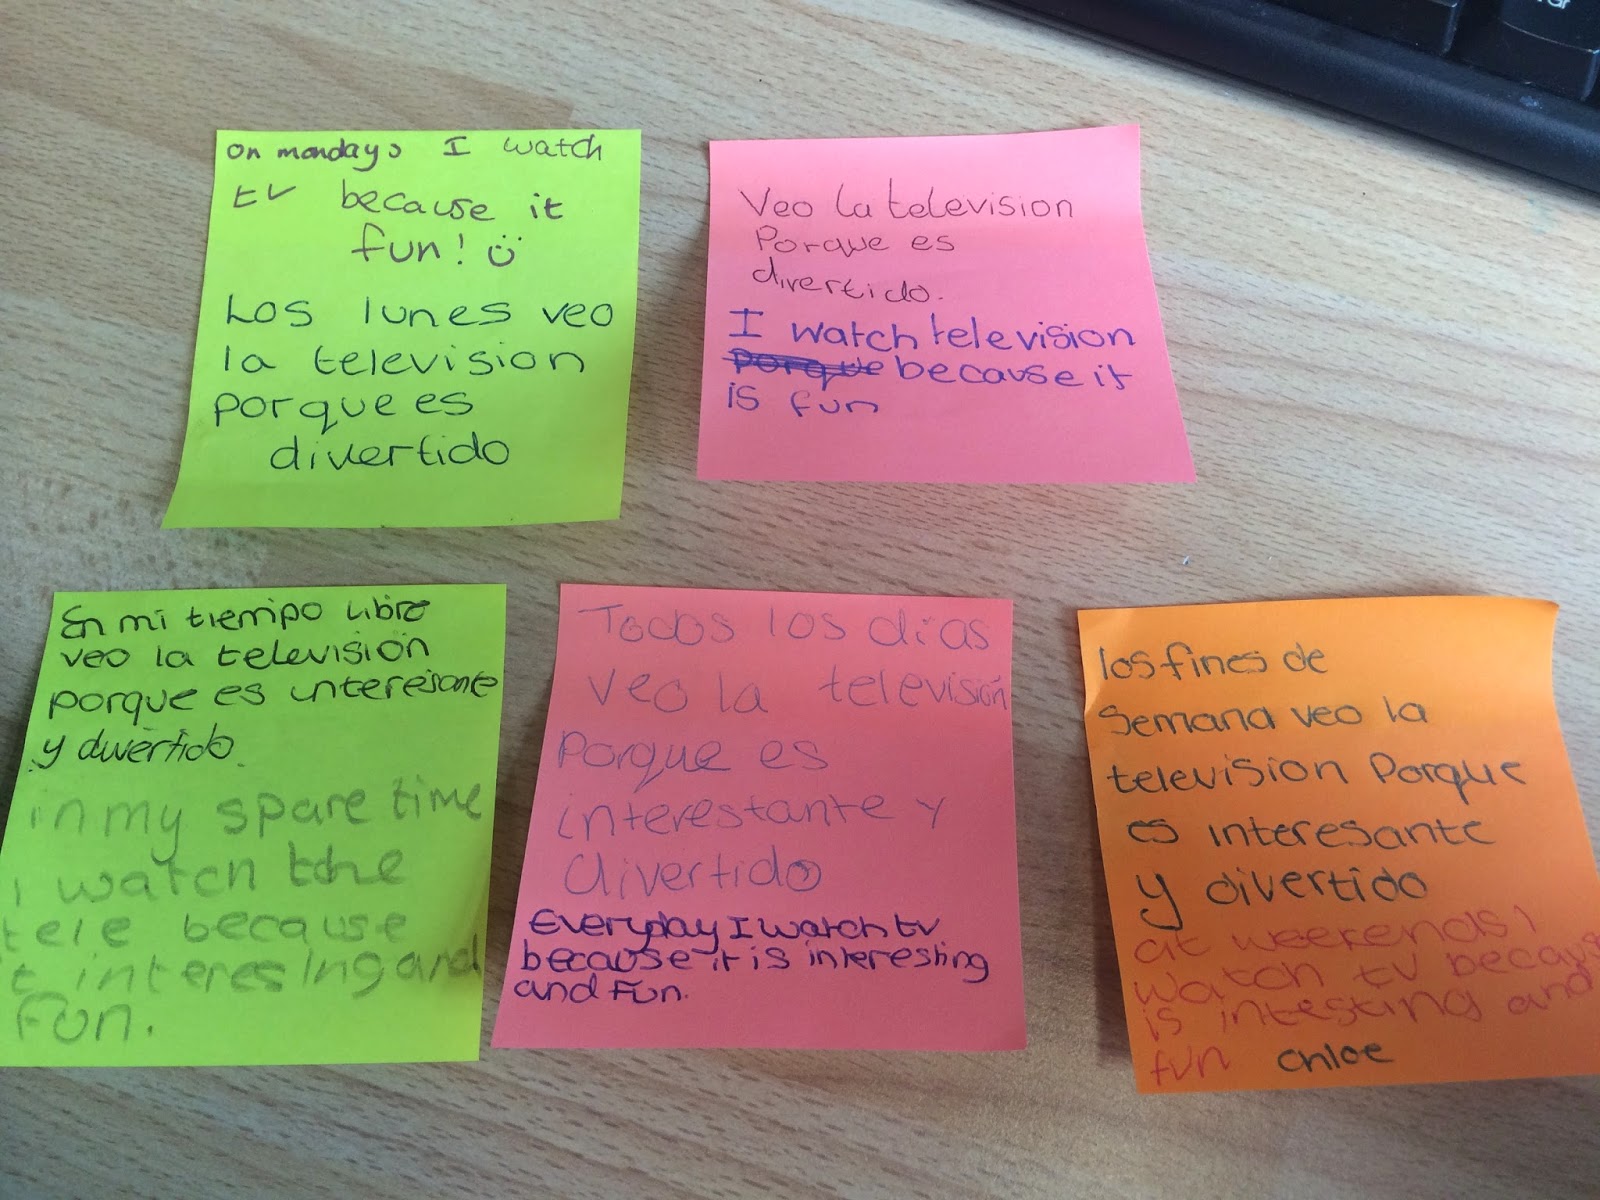 on mondays I watch
tv because it
fun!
Los lunes veo
la television
porque es
divertido
Veo la television
Porque es
divertido.
I watch television
porque because it
is fun
En mi tiempo libre
veo la televisión
porque es interesante
y divertido.
in my spare time
i watch the
tele because
it interesing and
fun.
Todos los días
veo la televisión
porque es
interestante y
divertido
Everyday I watch tv
because it is interesting
and fun.
los fines de
semana veo la
television Porque
es interesante
y divertido
at weekends I
watch tv because
is intesting and
fun chloe